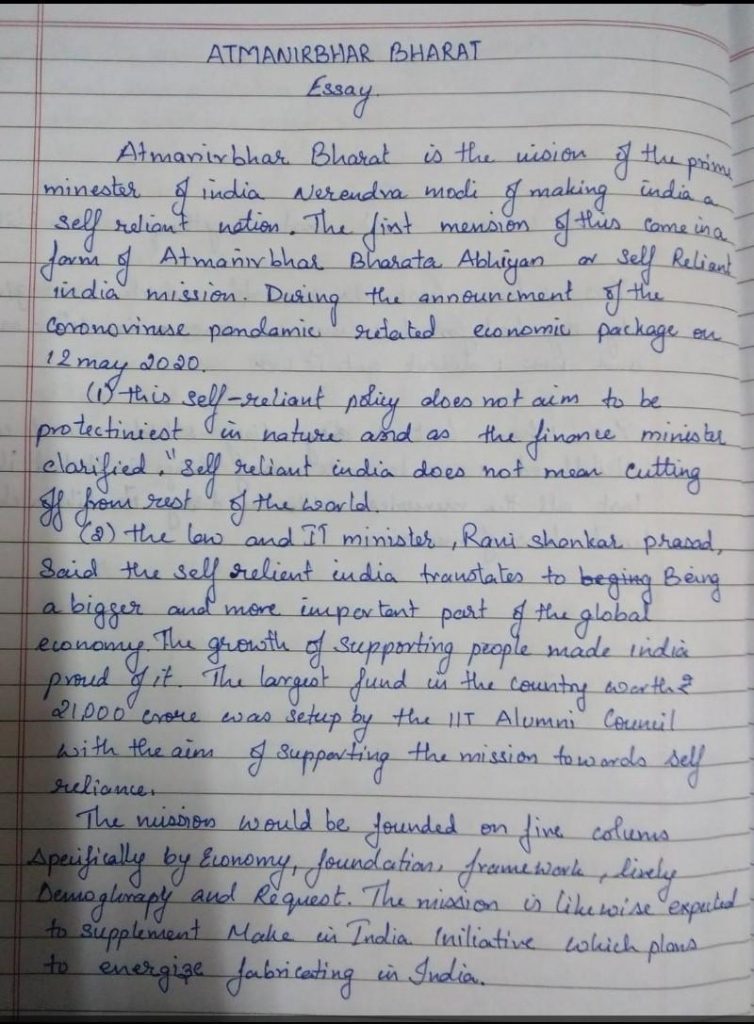 ATMANIRBHAR BHARAT
Essay.
Atmanirbhar Bharat is the vision of the prime
minester of india Nerendra modi of making india a
self reliant nation. The first mension of this came in a
form of Atmanirbhar Bharata Abhiyan or Self Reliant
india mission. During the announcment of the
coronoviruse pandamic related economic package on
12 may 2020.
(1) this self-reliant policy does not aim to be
protectiniest in nature and as the finance minister
clarified, "self reliant india does not mean cutting
off from rest of the world.
(2) the law and IT minister, Ravi shankar prasad,
Said the self relient india translates to beging Being
a bigger and more important part of the global
economy. The growth of supporting people made india
proud of it. The largest fund in the country worth ₹
21,000 crore was setup by the IIT Alumni Council
with the aim of supporting the mission towards self
reliance.
The mission would be founded on five colums
specifically by Economy, foundation, framework, lively
Demoghrapy and Request. The mission is likewise expected
to supplement Make in India Iniliative which plans
to energize fabricating in India.